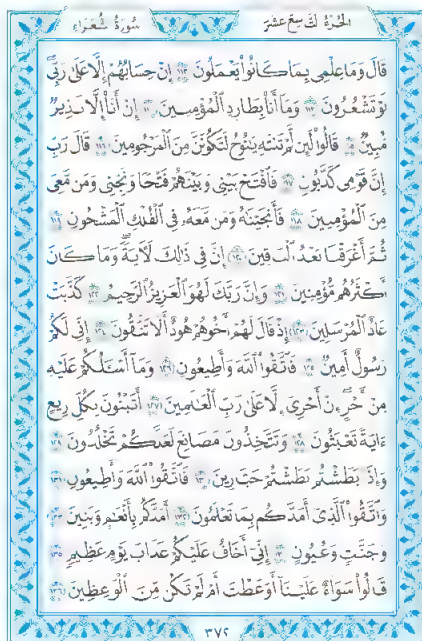 الجزء التاسع عشر
سورة شعراء
قَالَ وَمَا عِلْمِي بِمَا كَانُوا۟ يَعْمَلُونَ ١١٢ إِنْ حِسَابُهُمْ إِلَّا عَلَىٰ رَبِّي
لَوْ تَشْعُرُونَ ١١٣ وَمَآ أَنَا۠ بِطَارِدِ ٱلْمُؤْمِنِينَ ١١٤ إِنْ أَنَا۠ إِلَّا نَذِيرٌ
مُّبِينٌ ١١٥ قَالُوا۟ لَئِن لَّمْ تَنتَهِ يَٰنُوحُ لَتَكُونَنَّ مِنَ ٱلْمَرْجُومِينَ ١١٦ قَالَ رَبِّ
إِنَّ قَوْمِي كَذَّبُونِ ١١٧ فَٱفْتَحْ بَيْنِي وَبَيْنَهُمْ فَتْحًا وَنَجِّنِي وَمَن مَّعِيَ
مِنَ ٱلْمُؤْمِنِينَ ١١٨ فَأَنجَيْنَٰهُ وَمَن مَّعَهُۥ فِي ٱلْفُلْكِ ٱلْمَشْحُونِ ١١٩
ثُمَّ أَغْرَقْنَا بَعْدُ ٱلْبَاقِينَ ١٢٠ إِنَّ فِي ذَٰلِكَ لَءَايَةً وَمَا كَانَ
أَكْثَرُهُم مُّؤْمِنِينَ ١٢١ وَإِنَّ رَبَّكَ لَهُوَ ٱلْعَزِيزُ ٱلرَّحِيمُ ١٢٢ كَذَّبَتْ
عَادٌ ٱلْمُرْسَلِينَ ١٢٣ إِذْ قَالَ لَهُمْ أَخُوهُمْ هُودٌ أَلَا تَتَّقُونَ ١٢٤ إِنِّي لَكُمْ
رَسُولٌ أَمِينٌ ١٢٥ فَٱتَّقُوا۟ ٱللَّهَ وَأَطِيعُونِ ١٢٦ وَمَآ أَسْـَٔلُكُمْ عَلَيْهِ
مِنْ أَجْرٍ إِنْ أَجْرِيَ إِلَّا عَلَىٰ رَبِّ ٱلْعَٰلَمِينَ ١٢٧ أَتَبْنُونَ بِكُلِّ رِيعٍ
ءَايَةً تَعْبَثُونَ ١٢٨ وَتَتَّخِذُونَ مَصَانِعَ لَعَلَّكُمْ تَخْلُدُونَ ١٢٩
وَإِذَا بَطَشْتُم بَطَشْتُمْ جَبَّارِينَ ١٣٠ فَٱتَّقُوا۟ ٱللَّهَ وَأَطِيعُونِ ١٣١
وَٱتَّقُوا۟ ٱلَّذِيٓ أَمَدَّكُم بِمَا تَعْلَمُونَ ١٣٢ أَمَدَّكُم بِأَنْعَٰمٍ وَبَنِينَ ١٣٣
وَجَنَّٰتٍ وَعُيُونٍ ١٣٤ إِنِّيٓ أَخَافُ عَلَيْكُمْ عَذَابَ يَوْمٍ عَظِيمٍ ١٣٥
قَالُوا۟ سَوَآءٌ عَلَيْنَآ أَوَعَظْتَ أَمْ لَمْ تَكُن مِّنَ ٱلْوَٰعِظِينَ ١٣٦
٣٧٢